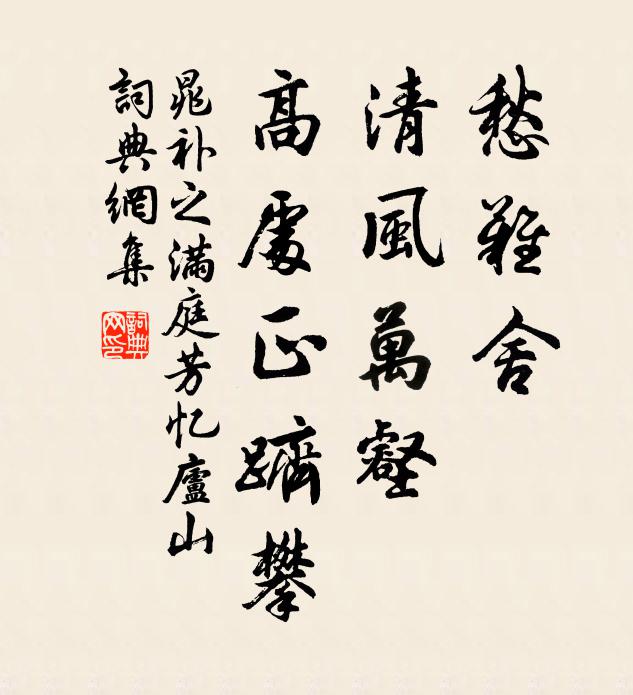 愁難舍
清風萬壑
高處正躋攀
晁补之满庭芳忆廬山
詞典網集
詞典網印